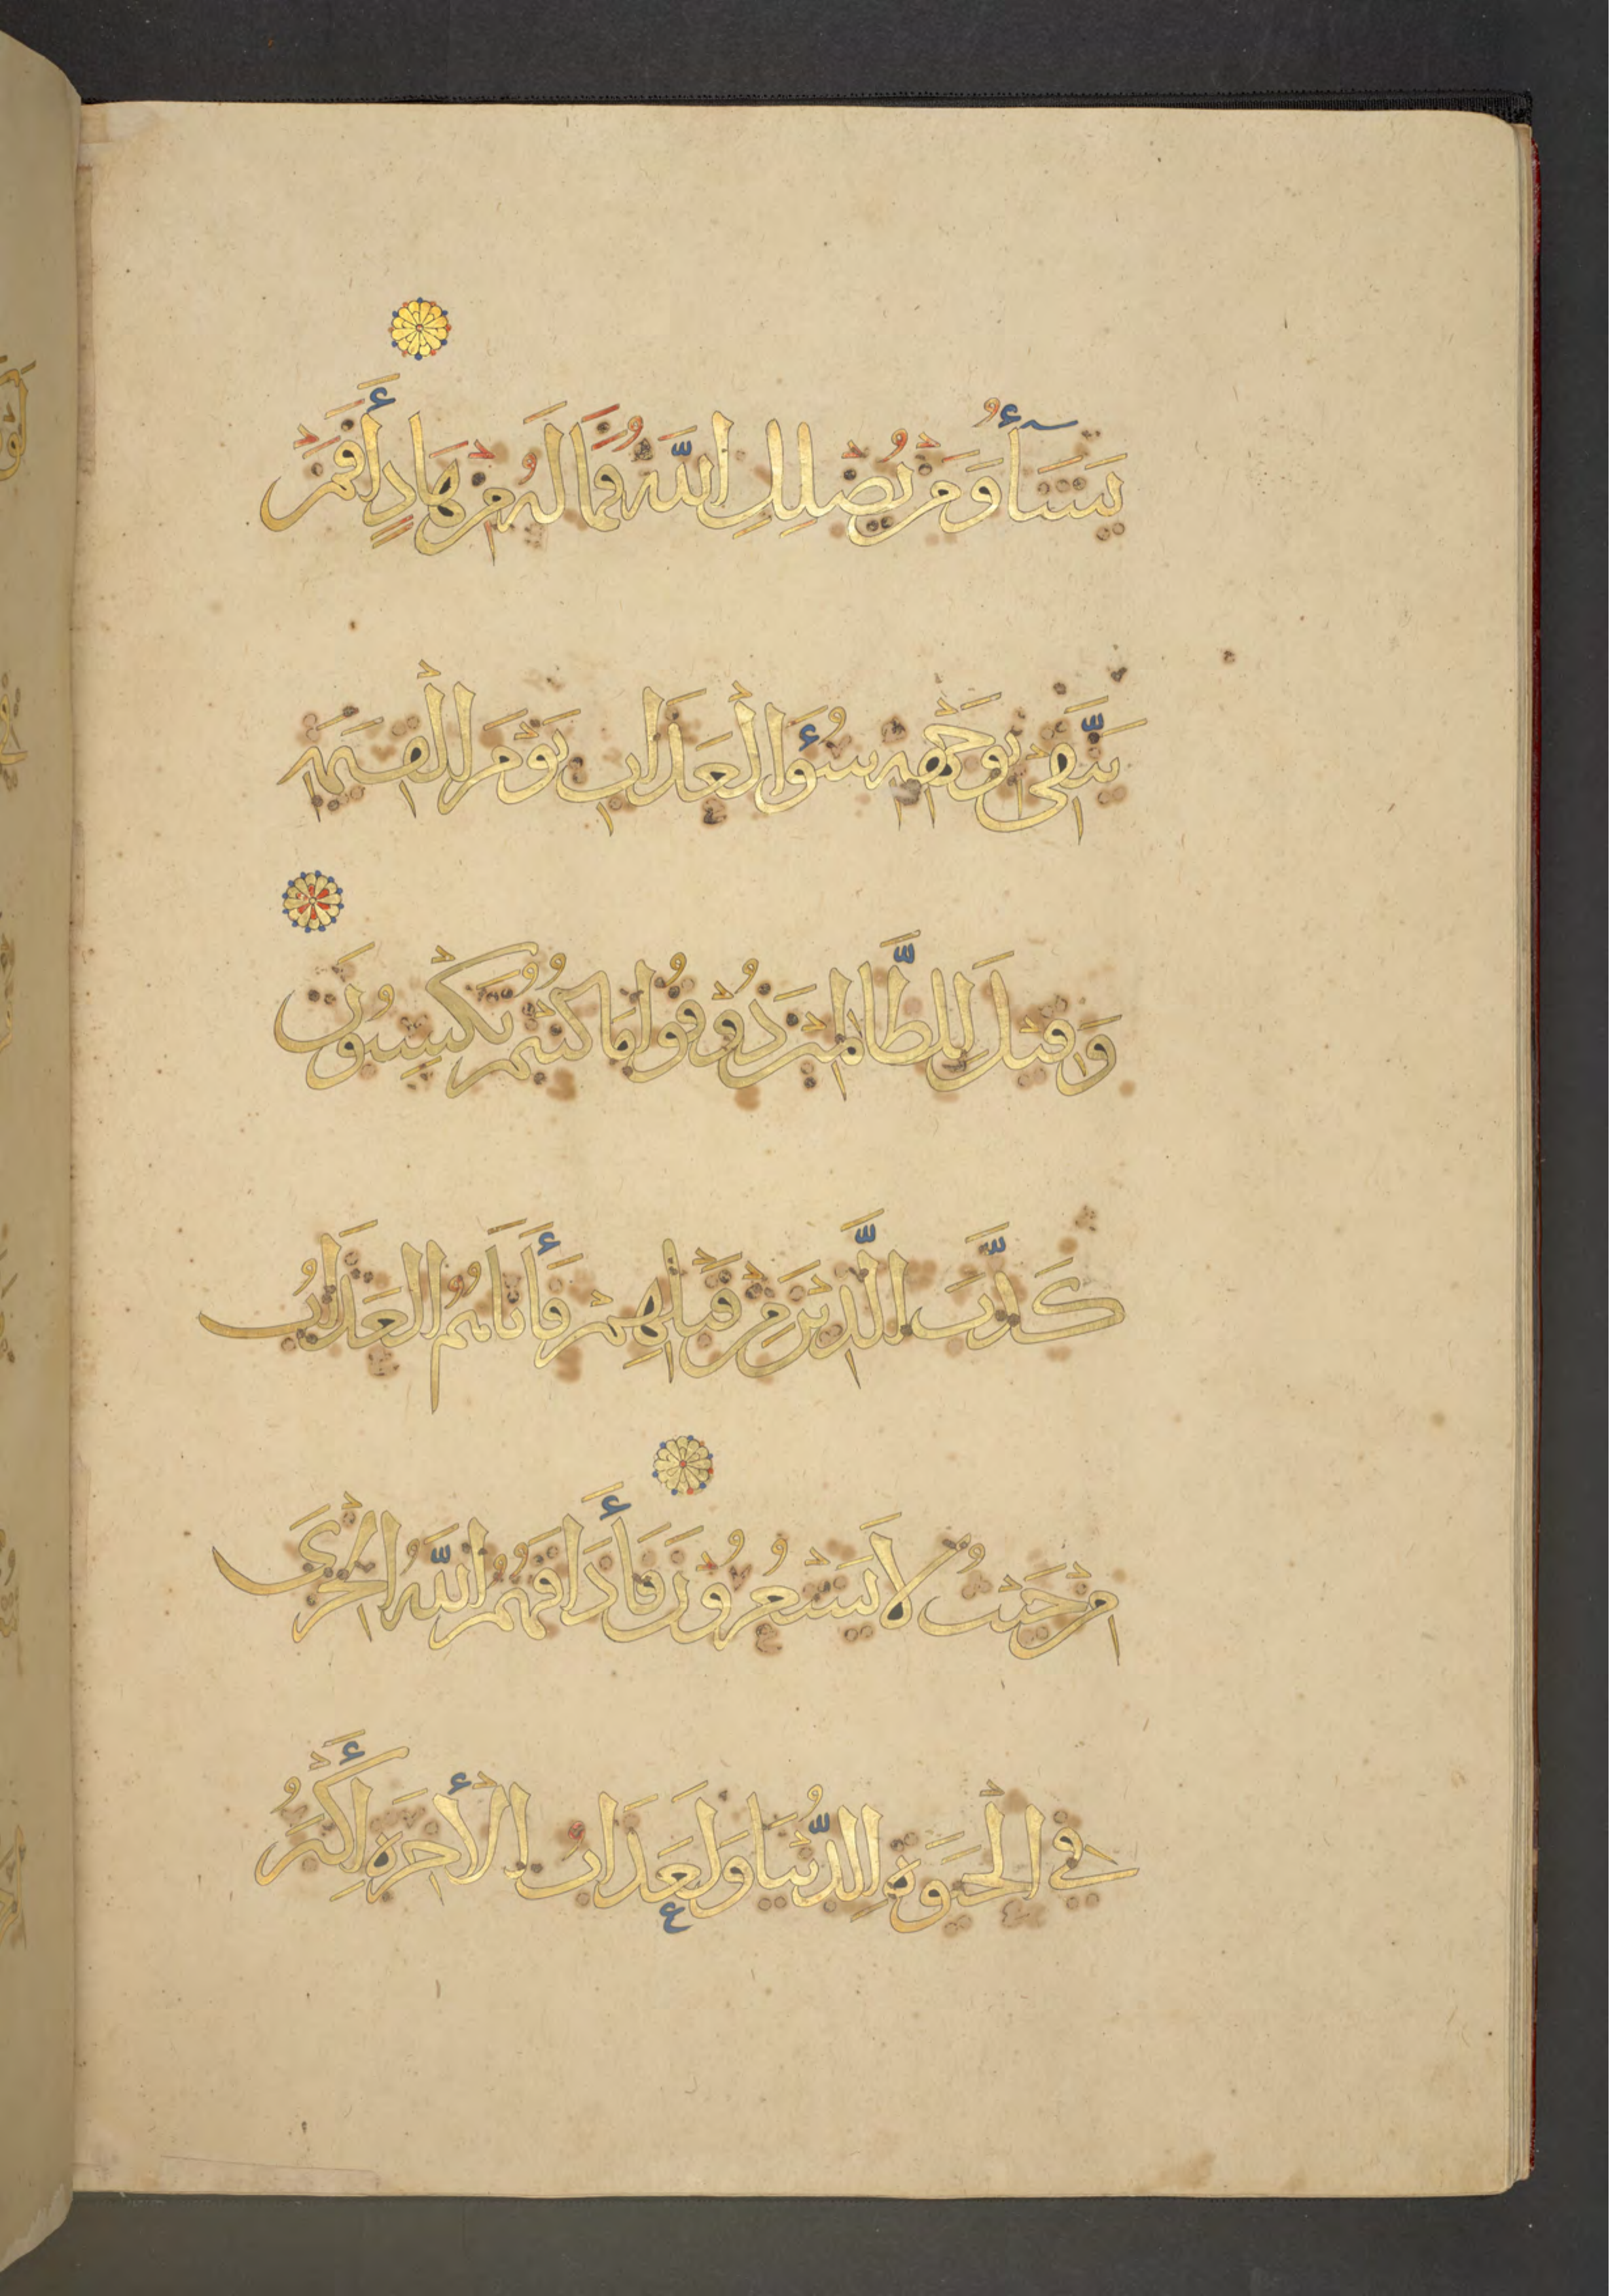 يَشَآءُ وَمَنْ يُضْلِلِ اللَّهُ فَمَا لَهُ مِنْ هَادٍ أَفَمَنْ
يَتَّقِى بِوَجْهِهِ سُوءَ الْعَذَابِ يَوْمَ الْقِيٰمَةِ
وَقِيلَ لِلظَّالِمِينَ ذُوقُوا مَا كُنْتُمْ تَكْسِبُونَ
كَذَّبَ الَّذِينَ مِنْ قَبْلِهِمْ فَأَتَاهُمُ الْعَذَابُ
مِنْ حَيْثُ لَا يَشْعُرُونَ فَأَذَاقَهُمُ اللَّهُ الْخِزْىَ
فِى الْحَيَوةِ الدُّنْيَا وَلَعَذَابُ الْأٰخِرَةِ أَكْبَرُ